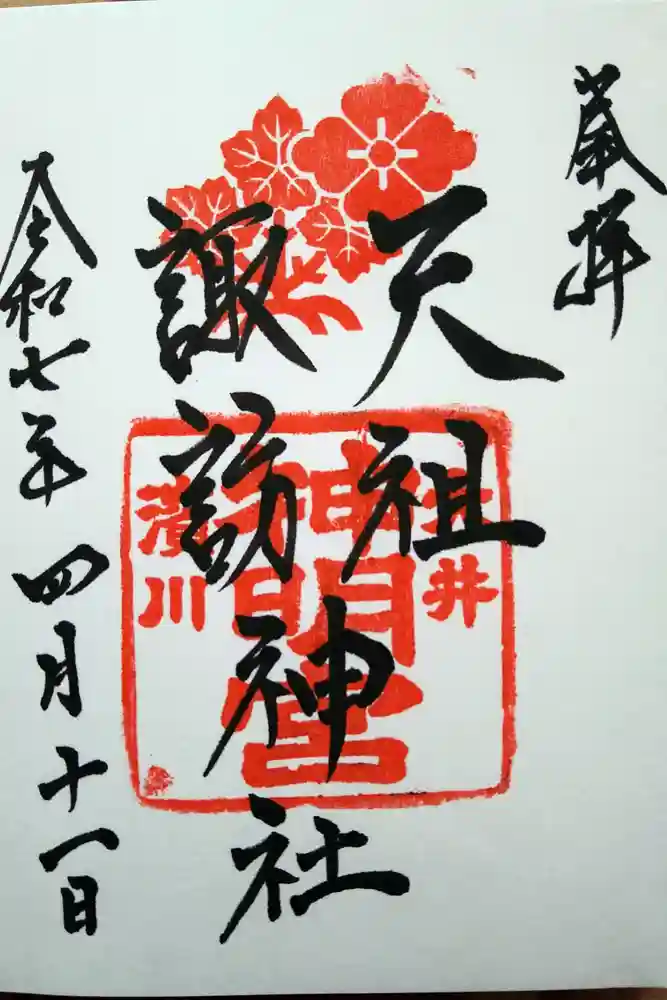 奉拝
天祖
諏訪
神社
令和七年四月十一日
大井
神明宮
濱川